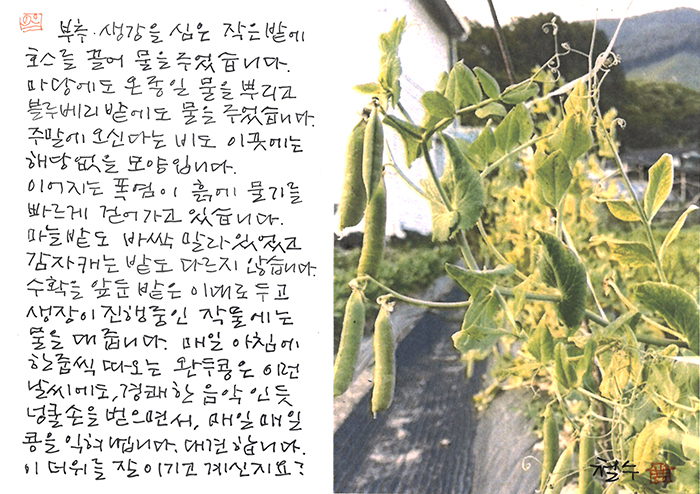 부추·생강을 심은 작은밭에
호스를 끌어 물을 주었습니다.
마당에도 온종일 물을 뿌리고
블루베리 밭에도 물을 주었습니다.
주말에 오신다는 비도 이곳에는
해당 없을 모양입니다.
이어지는 폭염이 흙에 물기를
빠르게 걷어가고 있습니다.
마늘밭도 바싹 말라있었고
감자캐는 밭도 다르지 않습니다.
수확을 앞둔 밭은 이대로 두고
생장이 진행중인 작물에는
물을 대줍니다. 매일 아침에
한줌씩 따오는 완두콩은 이런
날씨에도, 경쾌한 음악인듯
넝쿨손을 벋으면서, 매일매일
콩을 익혀냅니다. 대견합니다.
이 더위를 잘 이기고 계신지요?
철수